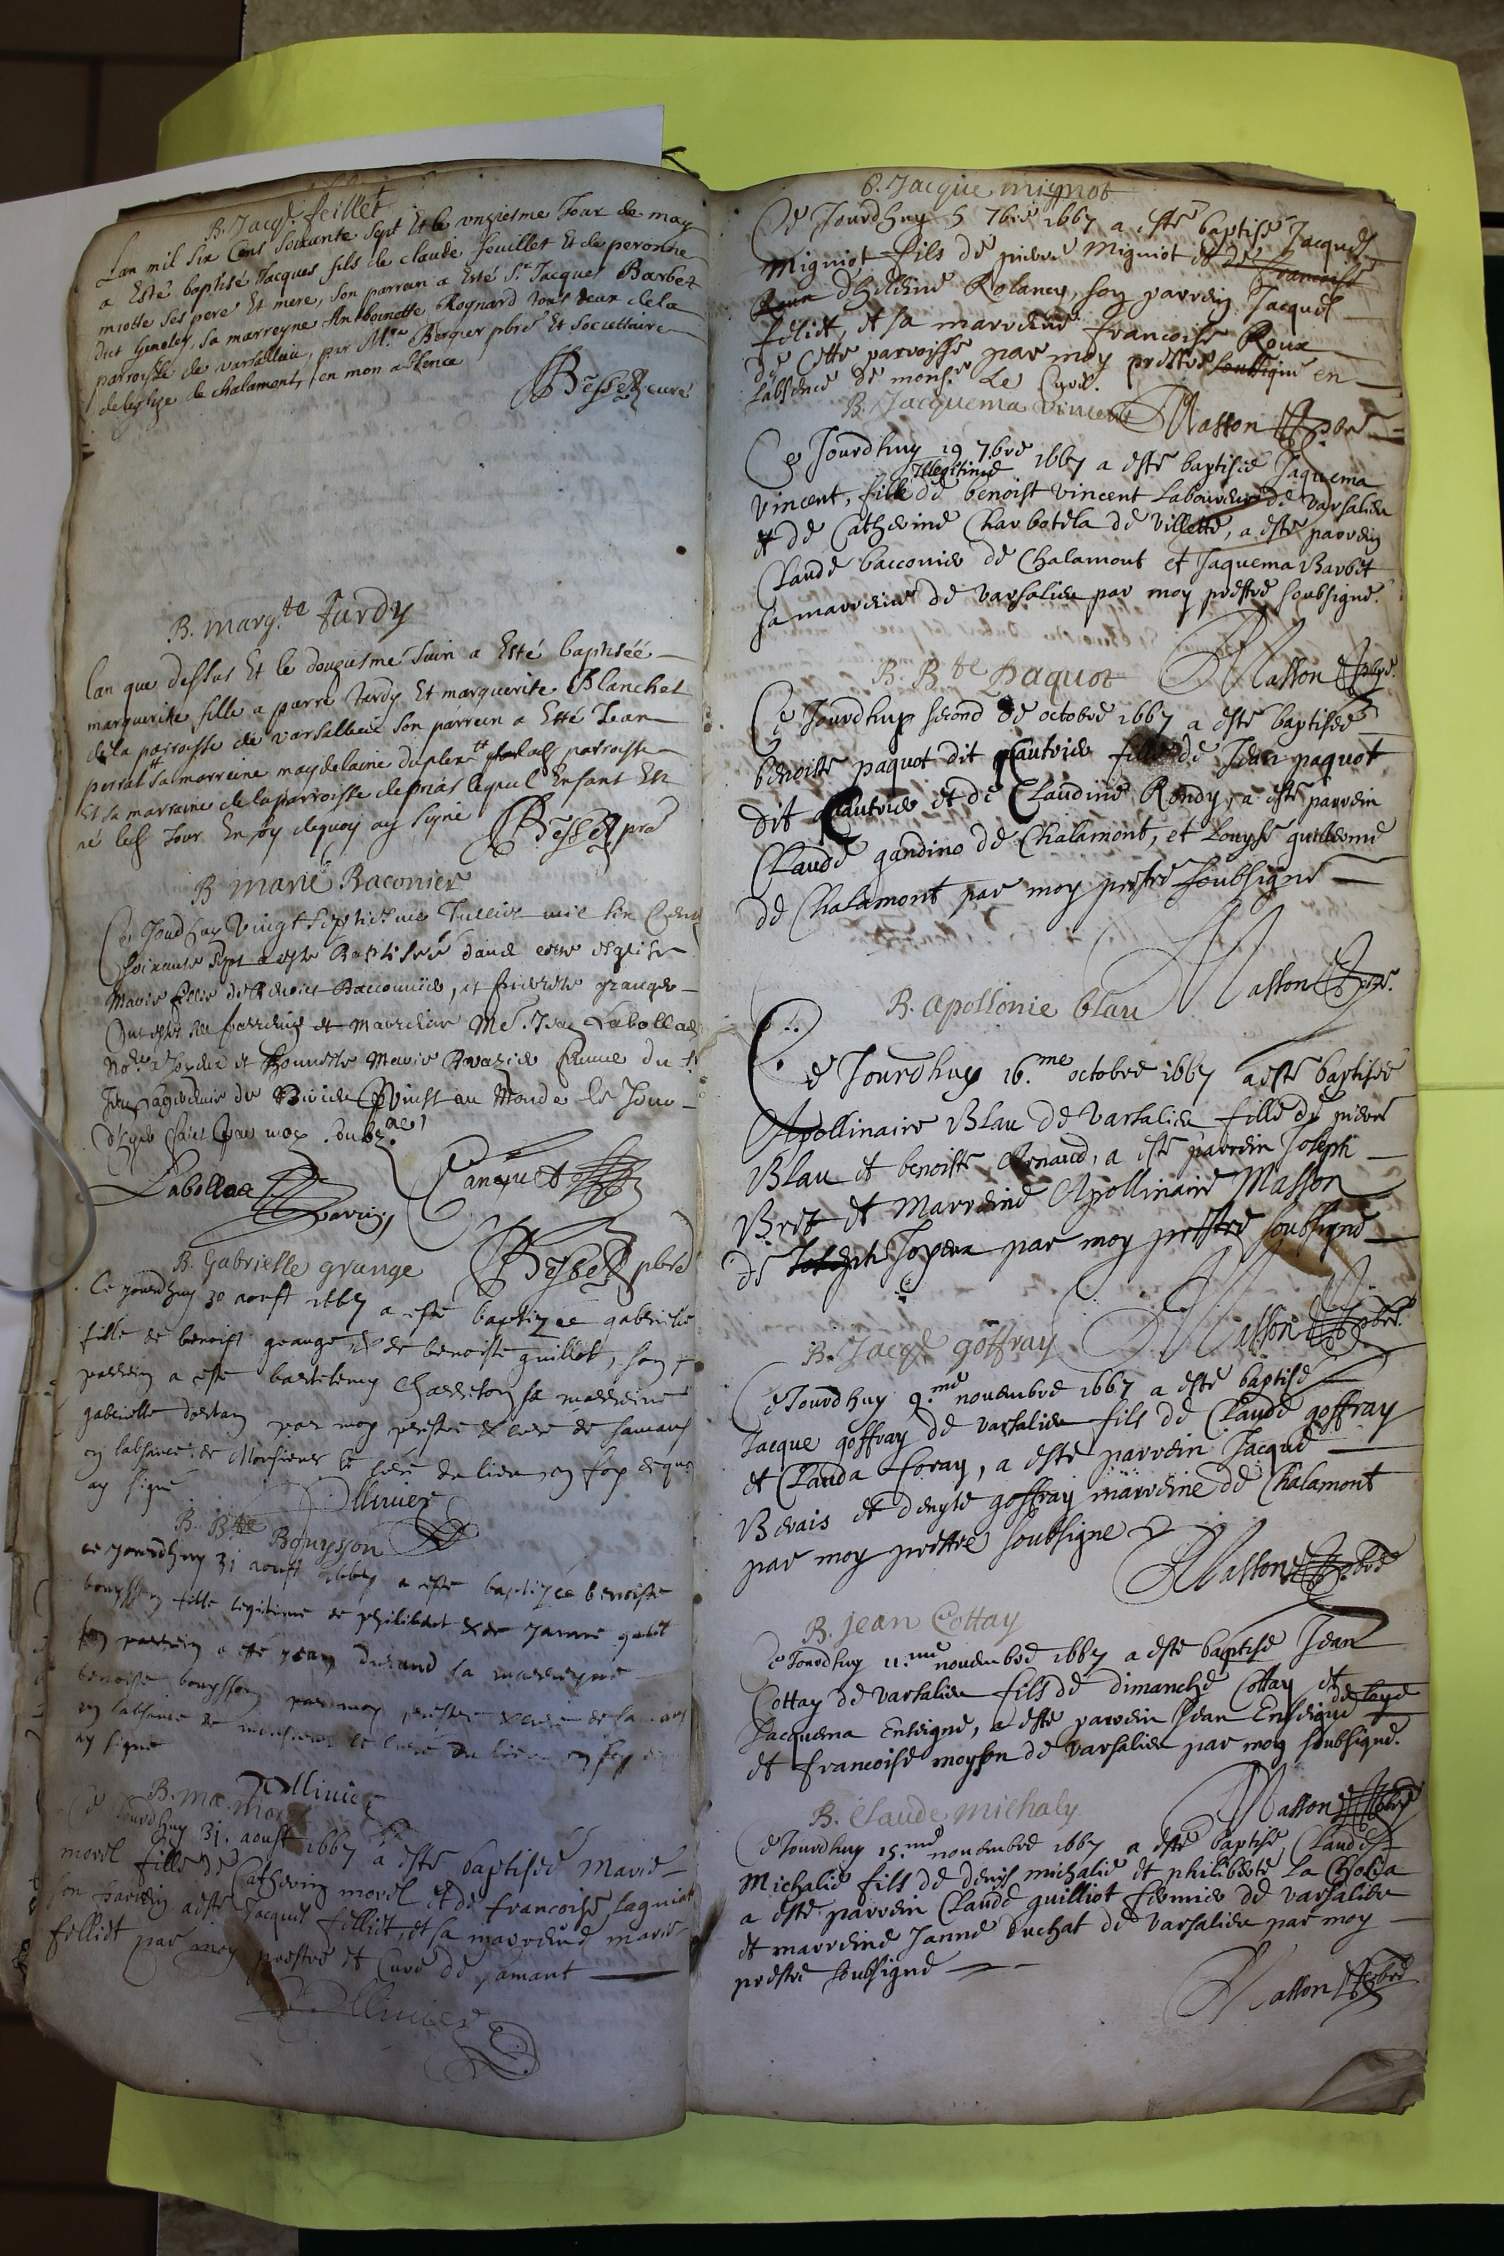 B. Jacq. feillet
Lan mil six Cens soixante sept Et le unziesme Jour de may
a Esté baptisé Jacques fils de claude feuillet Et de peronne
miotte ses pere Et mere, son parrain a Esté Sr Jacques Barbet
dict Geneley, sa marreyne Anthoinette Raynard tous deux de la
parroisse de varsallieu, par Mre Berger pbre Et Societtaire
de leglize de chalamont, en mon absence
Besset curé
B. margte Tardy
Lan que dessus Et le douziesme Juin a Esté baptiséé
marguerite fille a pierre tardy Et marguerite Blanchet
de la parroisse de varsallieu son parrein a Esté Jean
perrat sa marreine maydelaine duplex parroisse
Et sa marraine de la parroisse de priás lequel Enfant Est
né led Jour En foy dequoy ay signé Besset pre
B marie Baconier
Ce Jourdhuy Vingt septiesme Juillet mil six Cens
soixante sept a este Baptisée dans cette esglise
Marie fille de Benoict Bacconnier, et pierrette grange
Jean Labollas
et honneste Marie femme du Sr
au Monde le Jour
par moy soubz.né
Labollas parrin
Canquet
Besset pbre
B. Gabrielle grange
Ce jourdhuy 30 aoust 1667 a este baptizee gabrielle
fille de benoist grange & de benoiste guillot, son
parrein a este bartelemy Charreton sa marreine
gabrielle dostan par moy prestre & curé de samans
en labsance de Monsieur le curé du lieu en foy dequoy
ay signé
Ollivier
B. Bte Bouysson
ce jourdhuy 31 aoust 1667 a este baptizee benoiste
bouysson fille legitime de philibert & de Janne galet
son parrein a esté jean durand sa marreyne
benoiste bouysson par moy prestre & curé de samans
en labsance de monsieur le curé du lieu en foy
ay signé
Ollivier
B. Mie Morel
Ce Jourdhuy 31. aoust 1667 a esté baptisée Marie
morel fille de Catherin morel et de francoise Lagniat
son parrein a esté Jacques felliet, et sa marreine marie
felliet par moy prestre et Curé de samans
Ollivier
B. Jacque mignot
Ce Jourdhuy 5 7bre 1667 a esté baptisé Jacques
Migniot fils de pierre Migniot et de francoise
Roux dheleine Rolancy, son parrein Jacques
feliet, et sa marreine francoise Roux
de Cette parroisse par moy prestre soubsigné en
Labsence de monsr. Le Curé.
Masson pbre
B. Jacquema vincent
Ce Jourdhuy 19 7bre 1667 a esté baptisée Jaquema
Illegitime
Vincent, fille de benoist vincent Laboureur de varsalieu
et de Catherine Charbotela de villette, a esté parrein
Claude bacconier de Chalamont et Jaquema Barbet
sa marreine de varsalieu par moy prestre soubsigné.
Masson pbre.
B. Bte paquot
Ce Jourdhuy second de octobre 1667 a esté baptisée
benoiste paquot dit gautrier fille de Jean paquot
dit gautrier et de Claudine Rondy, a esté parrein
Claude gandino de Chalamont, et Louyse guillerme
de Chalamont par moy prestre soubsigné
Masson pbre.
B. apollonie blau
Ce Jourdhuy 16.me octobre 1667 a esté baptisée
Apollinaire Blau de varsalieu fille de pierre
Blau et benoiste Renaud, a esté parrein Joseph
Bret et Marreine Apollinaire Masson
de Joseph Joyeux par moy prestre soubsigné
Masson pbre.
B. Jacqe goffray
Ce Jourdhuy 9.me novembre 1667 a esté baptisé
Jacque goffray de varsalieu fils de Claude goffray
et Clauda foray, a esté parrein Jacque
Bevais et denyse goffray marreine de Chalamont
par moy prestre soubsigné
Masson pbre
B. jean Cottay
Ce Jourdhuy 11.me novembre 1667 a esté baptisé Jean
Cottay de varsalieu fils de dimanche Cottay et
Jacquema Enseigne, a esté parrein Jean Enseigne
et francoise moyson de varsalieu par moy soubsigné.
Masson pbre
B. Claude michaly
Ce Jourdhuy 15.me novembre 1667 a esté baptisé Claude
Michalie fils de denis michalie et philiberte La Cholia
a esté parrein Claude guilliot fermier de varsalieu
et marreine Janne duchat de varsalieu par moy
prestre soubsigné
Masson pbre